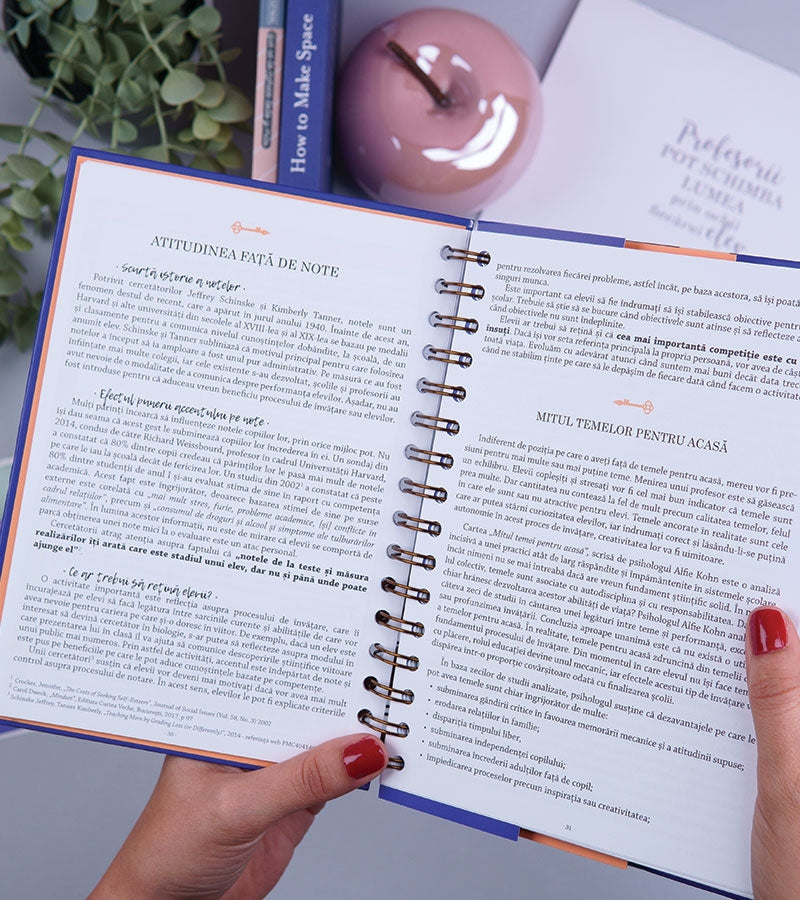 How to Make Space
Profesorii
POT SCHIMBA
LUMEA
prin ochii
fiecărui elev
ATITUDINEA FAȚĂ DE NOTE
· Scurtă istorie a notelor ·
Potrivit cercetătorilor Jeffrey Schinske și Kimberly Tanner, notele sunt un
fenomen destul de recent, care a apărut în jurul anului 1940. Înainte de acest an,
Harvard și alte universități din secolele al XVIII-lea și al XIX-lea se bazau pe medalii
și clasamente pentru a comunica nivelul cunoștințelor dobândite, la școală, de un
anumit elev. Schinske și Tanner subliniază că motivul principal pentru care folosirea
notelor a început să ia amploare a fost unul pur administrativ. Pe măsură ce au fost
înființate mai multe colegii, iar cele existente s-au dezvoltat, școlile și profesorii au
avut nevoie de o modalitate de a comunica despre performanța elevilor. Așadar, nu au
fost introduse pentru că aduceau vreun beneficiu procesului de învățare sau elevilor.
· Efectul punerii accentului pe note ·
Mulți părinți încearcă să influențeze notele copiilor lor, prin orice mijloc pot. Nu
își dau seama că acest gest le subminează copiilor lor încrederea în ei. Un sondaj din
2014, condus de către Richard Weissbourd, profesor în cadrul Universității Harvard,
a constatat că 80% dintre copii credeau că părinților lor le pasă mai mult de notele
pe care le iau la școală decât de fericirea lor. Un studiu din 2002¹ a constatat că peste
80% dintre studenții de anul I și-au evaluat stima de sine în raport cu competența
academică. Acest fapt este îngrijorător, deoarece bazarea stimei de sine pe surse
externe este corelată cu „mai mult stres, furie, probleme academice, [și] conflicte în
cadrul relațiilor”, precum și „consumul de droguri și alcool și simptome ale tulburărilor
alimentare”. În lumina acestor informații, nu este de mirare că elevii se comportă de
parcă obținerea unei note mici la o evaluare este un atac personal.
Cercetătorii atrag atenția asupra faptului că „notele de la teste și măsura
realizărilor îți arată care este stadiul unui elev, dar nu și până unde poate
ajunge el”²
· Ce ar trebui să rețină elevii? ·
O activitate importantă este reflecția asupra procesului de învățare, care îi
încurajează pe elevi să facă legătura între sarcinile curente și abilitățile de care vor
avea nevoie pentru cariera pe care și-o doresc în viitor. De exemplu, dacă un elev este
interesat să devină cercetător în biologie, s-ar putea să reflecteze asupra modului în
care prezentarea lui în clasă îl va ajuta să comunice descoperirile științifice viitoare
unui public mai numeros. Prin astfel de activități, accentul este îndepărtat de note și
este pus pe beneficiile pe care le pot aduce cunoștințele bazate pe competențe.
Unii cercetători³ susțin că elevii vor deveni mai motivați dacă vor avea mai mult
control asupra procesului de notare. În acest sens, elevilor le pot fi explicate criteriile
¹ Crocker, Jennifer, „The Costs of Seeking Self-Esteem”, Journal of Social Issues (Vol. 58, No. 3) 2002
² Carol Dweck, „Mindset”, Editura Curtea Veche, București, 2017, p 97
³ Schinske Jeffrey, Tanner Kimberly, „Teaching More by Grading Less (or Differently)”, 2014 - referința web
· 30 ·
pentru rezolvarea fiecărei probleme, astfel încât, pe baza acestora, să își poată
singuri munca.
Este important ca elevii să fie îndrumați să își stabilească obiective pentru
școlar. Trebuie să știe să se bucure când obiectivele sunt atinse și să reflecteze
când obiectivele nu sunt îndeplinite.
Elevii ar trebui să rețină și că cea mai importantă competiție este cu
înșiți. Dacă își vor seta referința principală la propria persoană, vor avea de câș
toată viața. Evoluăm cu adevărat atunci când suntem mai buni decât data trec
când ne stabilim ținte pe care să le depășim de fiecare dată când facem o activitat
MITUL TEMELOR PENTRU ACASĂ
Indiferent de poziția pe care o aveți față de temele pentru acasă, mereu vor fi pre-
siuni pentru mai multe sau mai puține teme. Menirea unui profesor este să găsească
un echilibru. Elevii copleșiți și stresați vor fi cel mai bun indicator că temele sunt
prea multe. Dar cantitatea nu contează la fel de mult precum calitatea temelor, felul
în care ele sunt sau nu atractive pentru elevi. Temele ancorate în realitate sunt cele
care ar putea stârni curiozitatea elevilor, iar îndrumați corect și lăsându-li-se puțină
autonomie în acest proces de învățare, creativitatea lor va fi uimitoare.
Cartea „Mitul temei pentru acasă”, scrisă de psihologul Alfie Kohn este o analiză
incisivă a unei practici atât de larg răspândite și împământenite în sistemele școlare
încât nimeni nu se mai întreabă dacă are vreun fundament științific solid. În
lul colectiv, temele sunt asociate cu autodisciplina și cu responsabilitatea. Dar
chiar hrănesc dezvoltarea acestor abilități de viață? Psihologul Alfie Kohn anal
câteva zeci de studii în căutarea unei legături între teme și performanță, exce
sau profunzimea învățării. Concluzia aproape unanimă este că nu există o uti
a temelor pentru acasă. În realitate, temele pentru acasă zdruncină din temelii
fundamentul procesului de învățare. Din momentul în care elevul nu își face tem
cu plăcere, rolul educației devine unul mecanic, iar efectele acestui tip de învățare v
dispărea într-o proporție covârșitoare odată cu finalizarea școlii.
În baza zecilor de studii analizate, psihologul susține că dezavantajele pe care le
pot avea temele sunt chiar îngrijorător de multe:
• subminarea gândirii critice în favoarea memorării mecanice și a atitudinii supuse;
• erodarea relațiilor în familie;
• dispariția timpului liber,
• subminarea independenței copilului;
• subminarea încrederii adulților față de copil;
• împiedicarea proceselor precum inspirația sau creativitatea;
· 31 ·